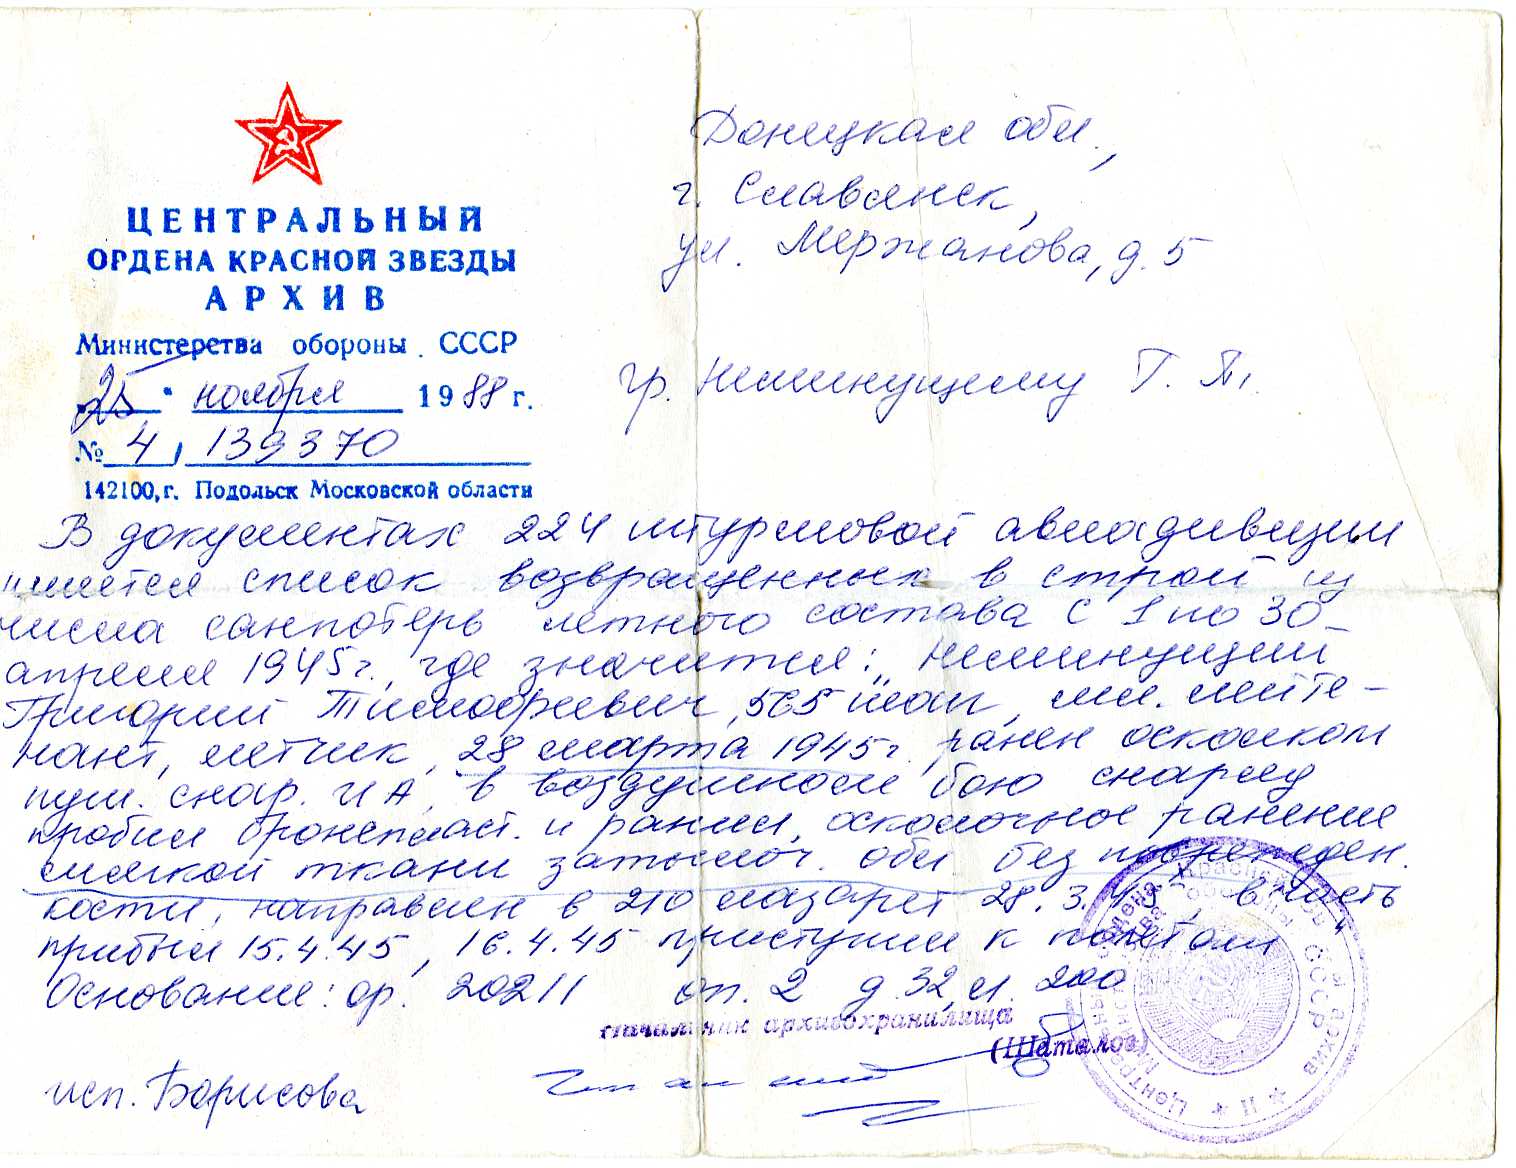 ЦЕНТРАЛЬНЫЙ
ОРДЕНА КРАСНОЙ ЗВЕЗДЫ
АРХИВ
Министерства обороны СССР
25 " ноября 1988 г.
№ 4 / 139370
142100, г. Подольск Московской области
Донецкая обл.,
г. Славянск,
ул. Мержанова, д. 5
гр. Неминущему Г. Т.
В документах 224 штурмовой авиадивизии
имеется список возвращенных в строй из
числа санпотерь летного состава с 1 по 30
апреля 1945 г., где значится: „Неминущий
Григорий Тимофеевич, 565 шап, мл. лейте-
нант, летчик, 28 марта 1945 г. ранен осколком
пуш. снар. ИА, в воздушном бою снаряд
пробил бронеспласт. и ранил, осколочное ранение
мягкой ткани затылоч. обл без поврежден.
кости, направлен в 210 лазарет 28.3.45, в часть
прибыл 15.4.45, 16.4.45 приступил к полетам"
Основание: ор. 20211 оп. 2 д. 32, л. 200
Начальник архивохранилища
(Шаталов)
исп. Борисова